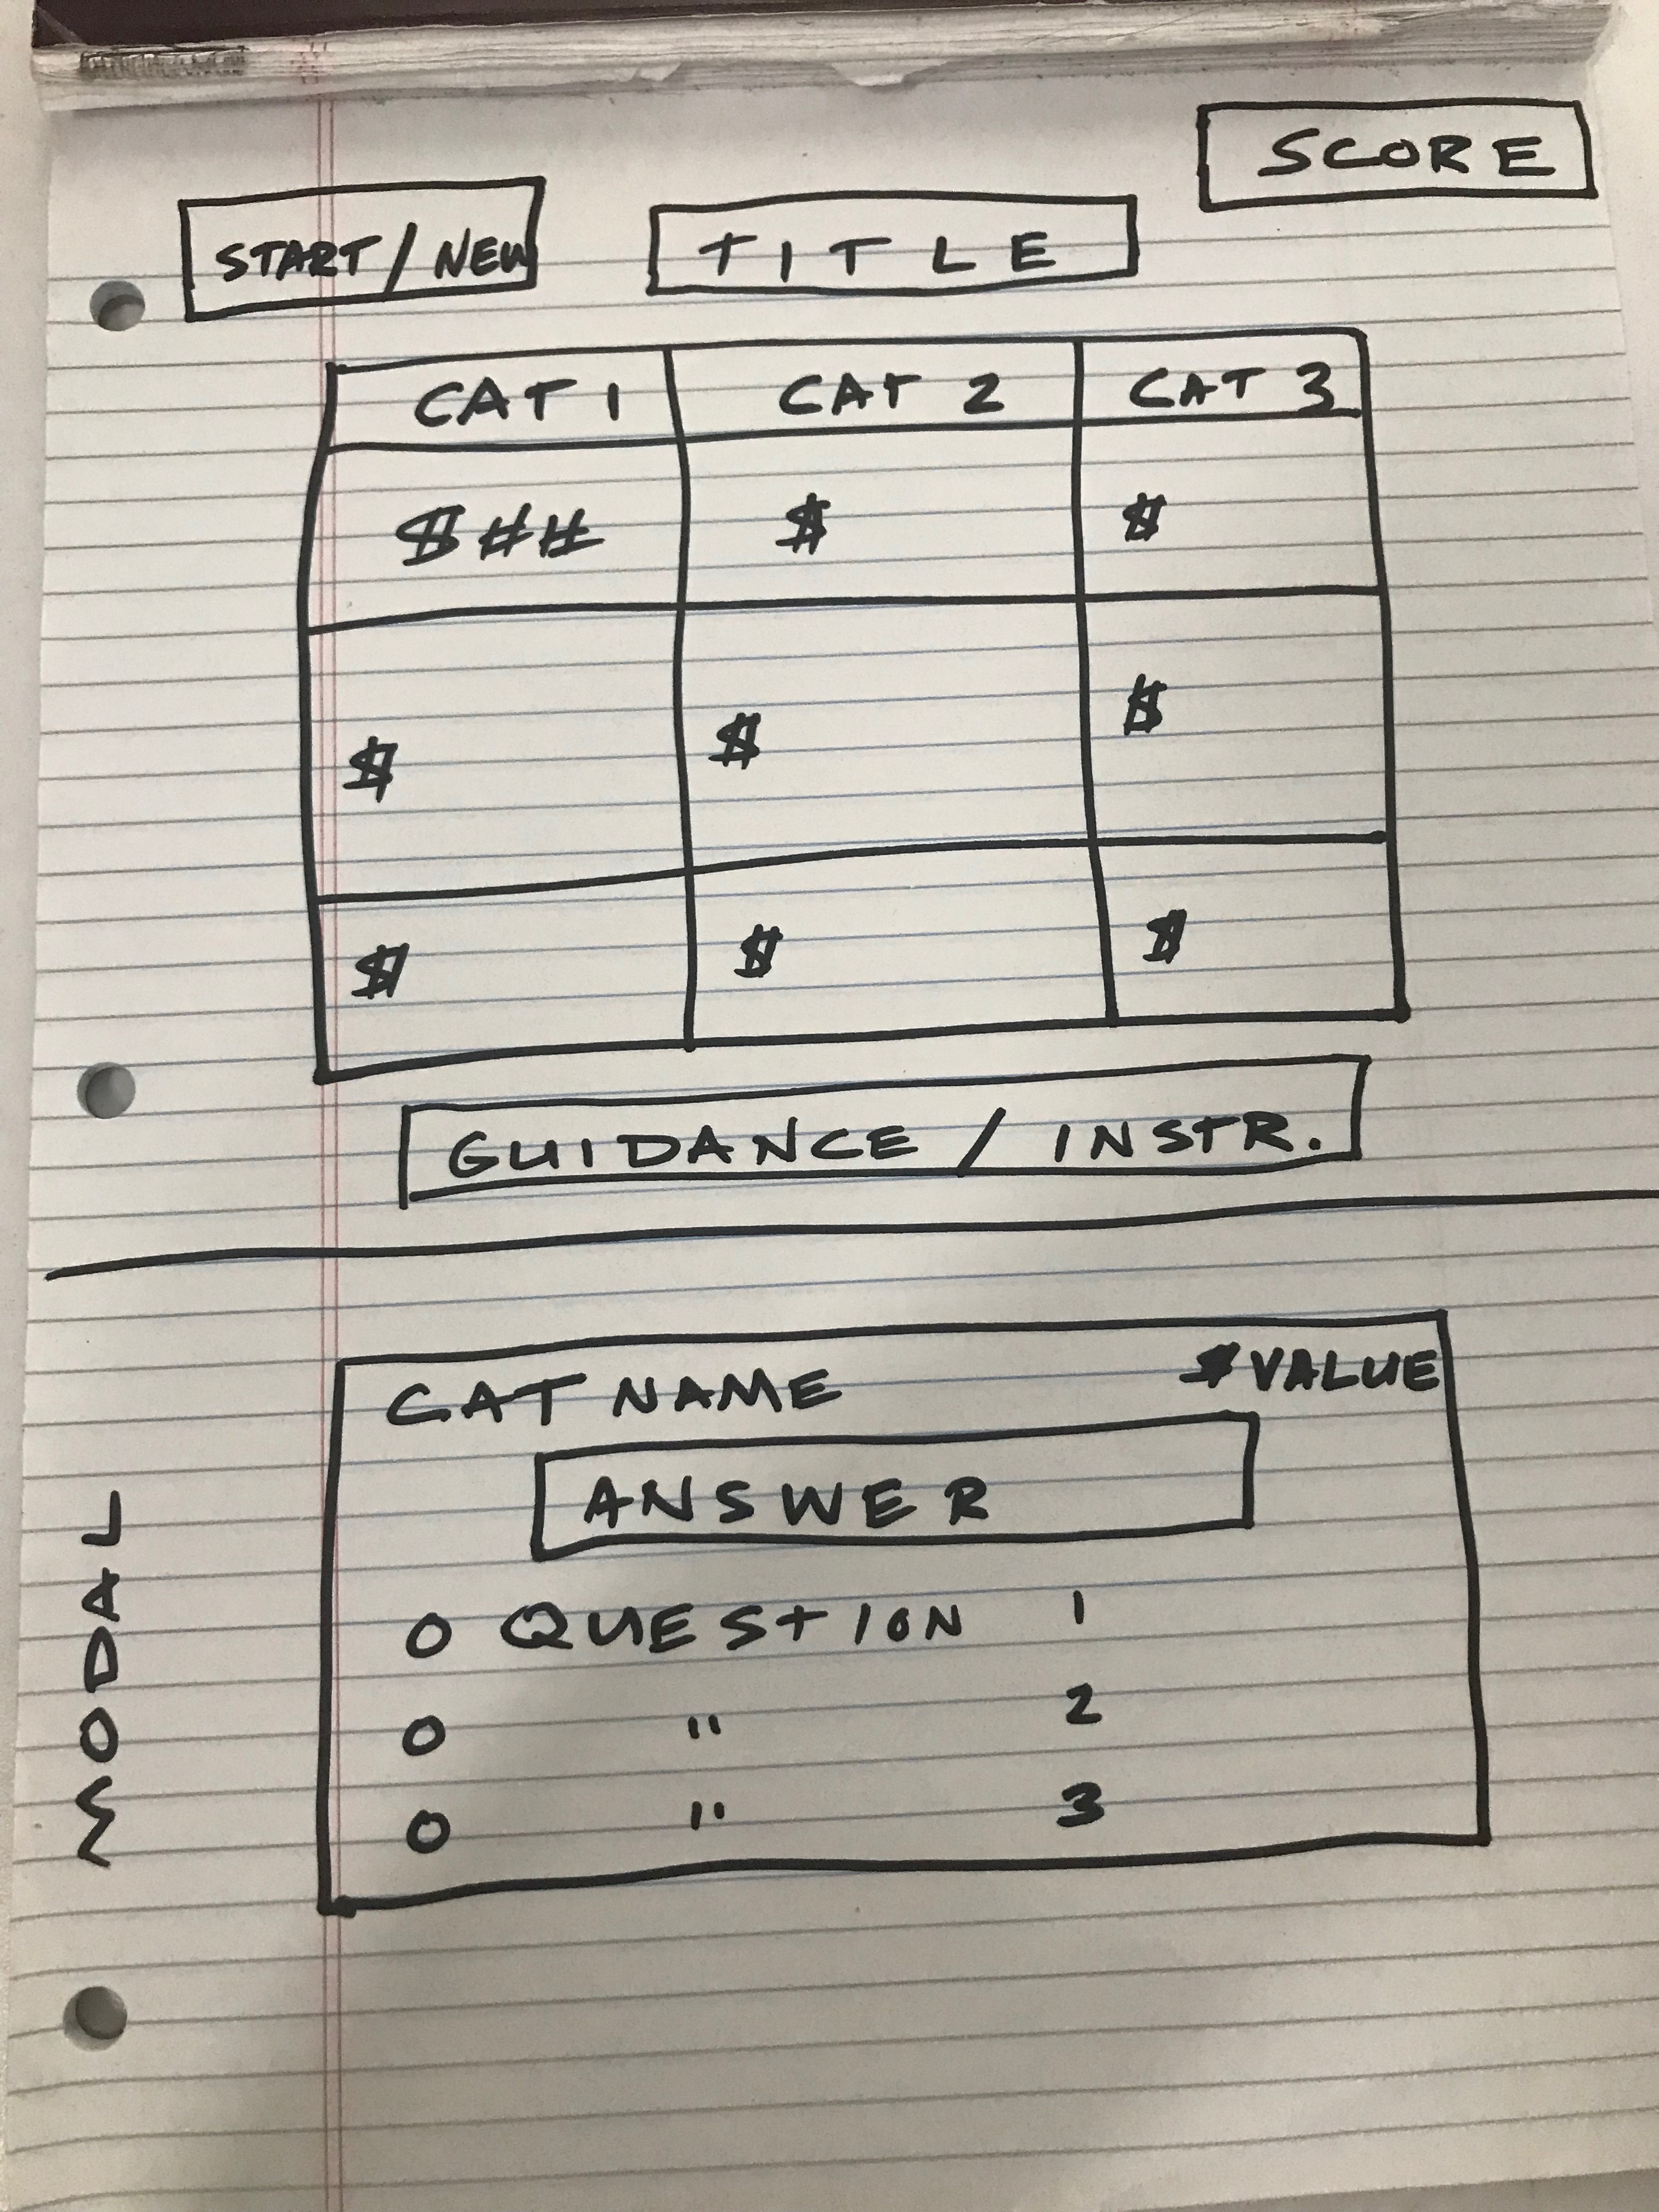 SCORE
START / NEW
TITLE
CAT 1 CAT 2 CAT 3
$## $ $
$ $ $
$ $ $
GUIDANCE / INSTR.
MODAL
CAT NAME $VALUE
ANSWER
O QUESTION 1
O " 2
O " 3